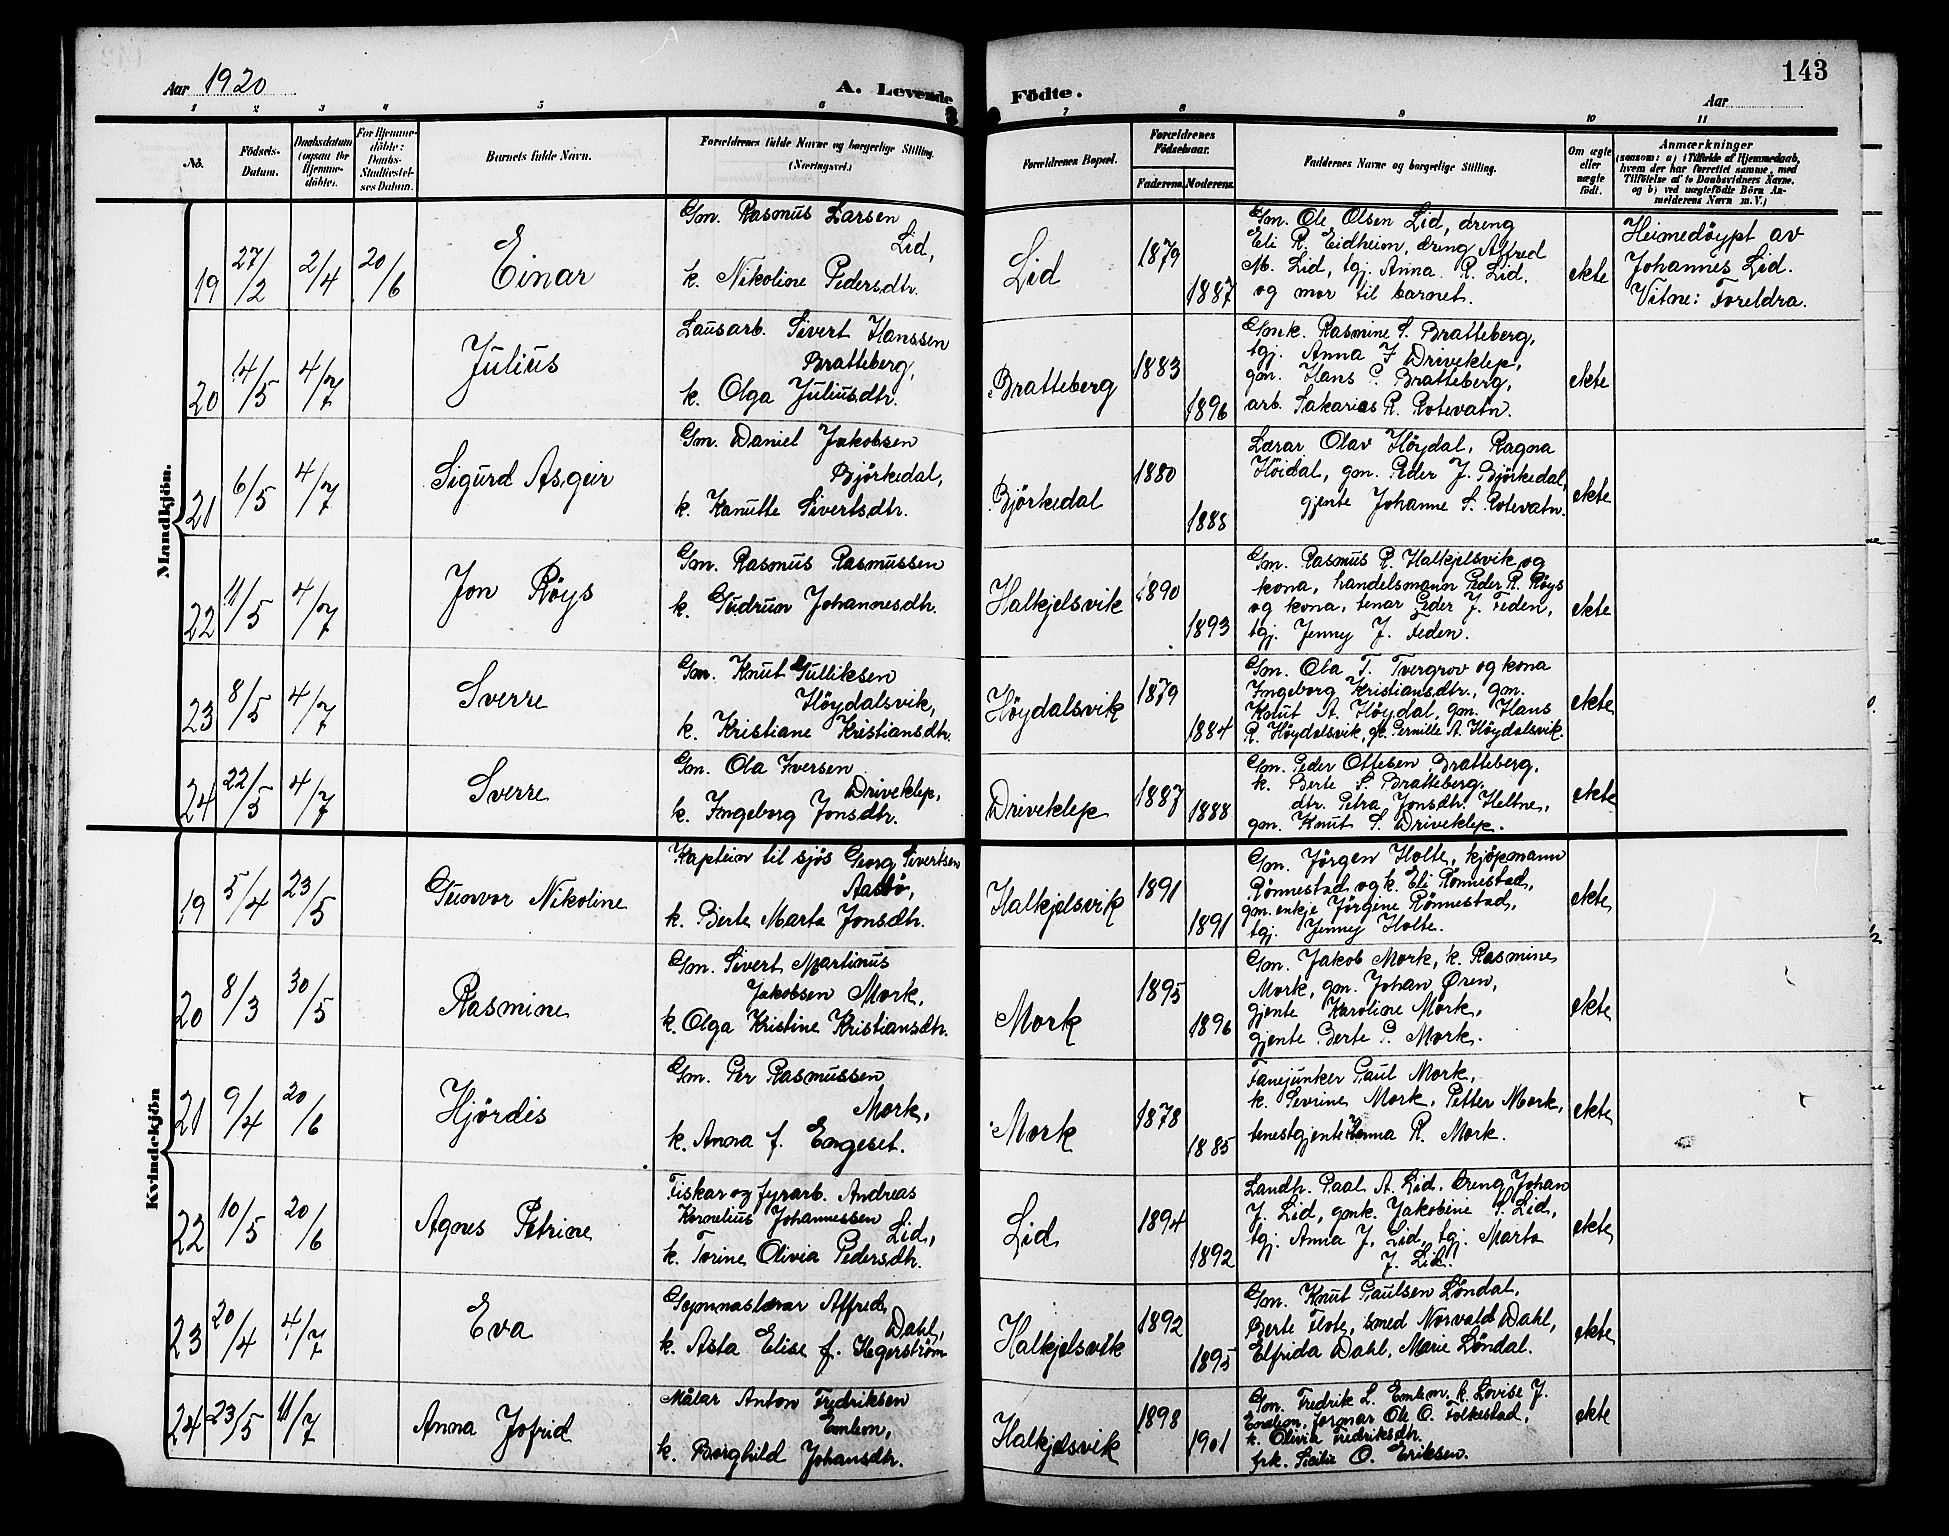 Aar 1920
A. Levende
Födte.
Aar
143
1 2 3 4 5 6 7 8 9 10 11
No.
Födsels-
Datum.
Daabsdatum
(ogsaa for
Hjemme-
döbte).
For Hjemme-
döbte:
Daabs-
Stadfæstel-
ses Datum.
Barnets fulde Navn.
Forældrenes fulde Navne og borgerlige Stilling.
(Næringsvei.)
Forældrenes Bopæl.
Forældrenes
Födselsaar.
Faderens.
Moderens.
Faddernes Navne og borgerlige Stilling.
Om ægte
eller
uægte
født.
Anmærkninger
(saasom: a) i Tilfælde af Hjemmedaab,
hvem der har forrettet samme, med
Tilföielse af to Daabsvidners Navne,
og b) ved uægtefödte Börn An-
melderens Navn m. V.)
Mandkjön.
19
27/2
2/4
20/6
Einar
Gm. Rasmus Larsen
Lid,
k. Nikoline Pedersdtr.
Lid
1879
1887
Gm. Ole Olsen Lid, dreng
Eli R. Eidheim, dreng Alfred
M. Lid, tgj. Anna R. Lid,
og mor til barnet.
ekte
Heimedöypt av
Johannes Lid.
Vitne: Foreldra.
20
14/5
4/7
Julius
Lausarb. Sivert Hanssen
Bratteberg,
k. Olga Juliusdtr.
Bratteberg
1883
1896
Gmk. Rasmine S. Bratteberg,
tgj. Anna J Driveklep,
gm. Hans P. Bratteberg,
arb. Sakarias R. Rotevatn.
ekte
21
6/5
4/7
Sigurd Asgeir
Gm. Daniel Jakobsen
Björkedal,
k. Kanutte Sivertsdtr.
Björkedal
1880
1888
Lærar Olav Höydal, Ragna
Höidal, gm. Peder J. Björkedal,
gjente Johanne S. Rotevatn.
ekte
22
11/5
4/7
Jon Röys
Gm. Rasmus Rasmussen
k. Gudrun Johannesdtr.
Halkjelsvik
1890
1893
Gm. Rasmus R. Halkjelsvik og
kona, handelsmann Peder R. Röys
og kona, tenar Peder J. Feden,
tgj. Jenny J. Feden.
ekte
23
8/5
4/7
Sverre
Gm. Knut Gulliksen
Höydalsvik,
k. Kristiane Kristiansdtr.
Höydalsvik
1879
1884
Gm. Ola T. Tvergrov og kona
Ingeborg Kristiansdtr., gm.
Knut A. Höydal, gm. Hans
R. Höydalsvik, gk. Pernille A. Höydalsvik.
ekte
24
22/5
4/7
Sverre
Gm. Ola Iversen
Driveklep,
k. Ingeborg Jonsdtr.
Driveklep
1887
1888
Gm. Peder Ottesen Bratteberg,
k. Berte S. Bratteberg,
dtr. Petra Jonsdtr. Heltne,
gm. Knut S. Driveklep.
ekte
Kvindekjön
19
5/4
23/5
Gunvor Nikoline
Kaptein til sjös Georg Sivertsen
Aasbö,
k. Berte Marta Jonsdtr.
Halkjelsvik
1891
1891
Gm. Jörgen Holte, kjöpmann
Rönnestad og k. Eli Rönnestad,
gm. enkje Jörgine Rönnestad,
tgj. Jenny Holte.
ekte
20
8/3
30/5
Rasmine
Gm. Sivert Martinus
Jakobsen Mork,
k. Olga Kristine Kristiansdtr.
Mork
1895
1896
Gm. Jakob Mork, k. Rasmine
Mork, gm. Johan Ören,
gjente Karoline Mork,
gjente Berte P. Mork.
ekte
21
9/4
20/6
Hjördis
Gm. Per Rasmussen
Mork,
k. Anna f. Engeset.
Mork
1878
1885
Fanejunker Paul Mork,
k. Sevrine Mork, Petter Mork,
tenestgjente Anna R. Mork.
ekte
22
10/5
20/6
Agnes Petrine
Fiskar og fyrarb. Andreas
Kornelius Johannessen
Lid,
k. Torine Olivia Pedersdtr.
Lid
1894
1892
Landh. Paal A. Lid, Dreng Johan
J. Lid, gmk. Jakobine S. Lid,
tgj. Anna J. Lid, tgj. Marta
J. Lid.
ekte
23
20/4
4/7
Eva
Gymnaslærar Alfred
Dahl,
k. Asta Elise f. Hegerström
Halkjelsvik
1892
1895
Gm. Knut Paulsen Löndal,
Berte Flote, smed Norvald Dahl,
Elfrida Dahl, Marie Löndal.
ekte
24
23/5
11/7
Anna Jofrid
Målar Anton Fredriksen
Emlem,
k. Borghild Johansdtr.
Halkjelsvik
1898
1901
Gm. Fredrik L. Emlem, k. Lovise J.
Emlem, Ole O. Folkestad,
k. Olivia Fredriksdtr.
frk. Sicilie O. Eriksen.
ekte